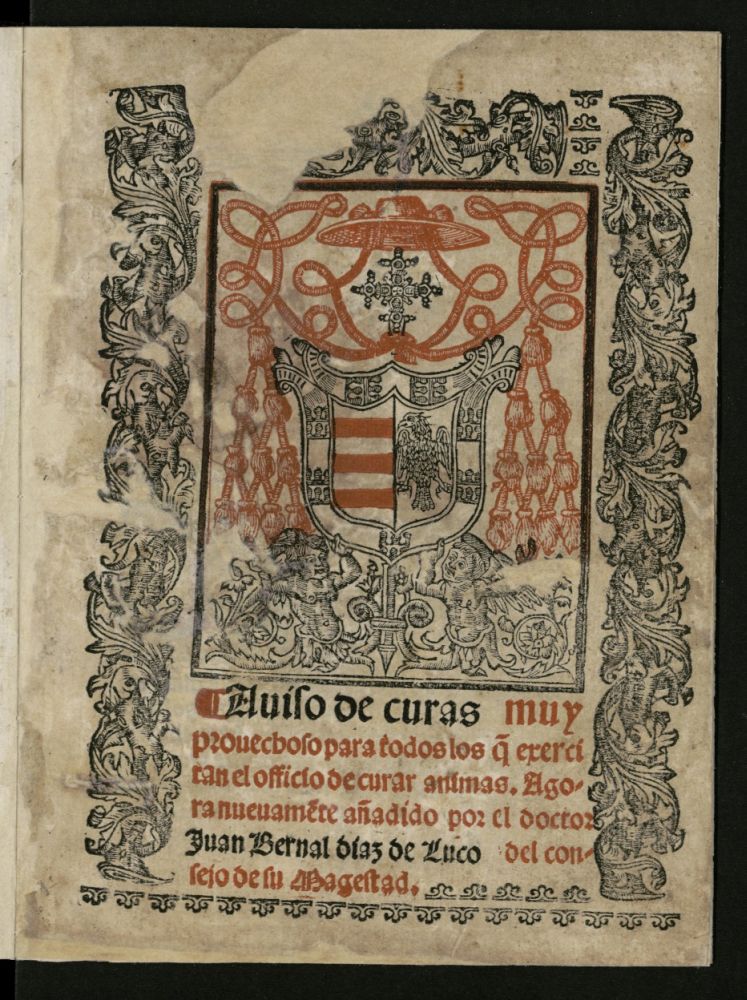 ¶ Auiso de curas muy
prouechoso para todos los q̃ exerci
tan el officio de curar animas. Ago-
ra nueuamẽte añadido por el doctor
Juan Bernal diaz de Luco del con-
sejo de su Magestad.